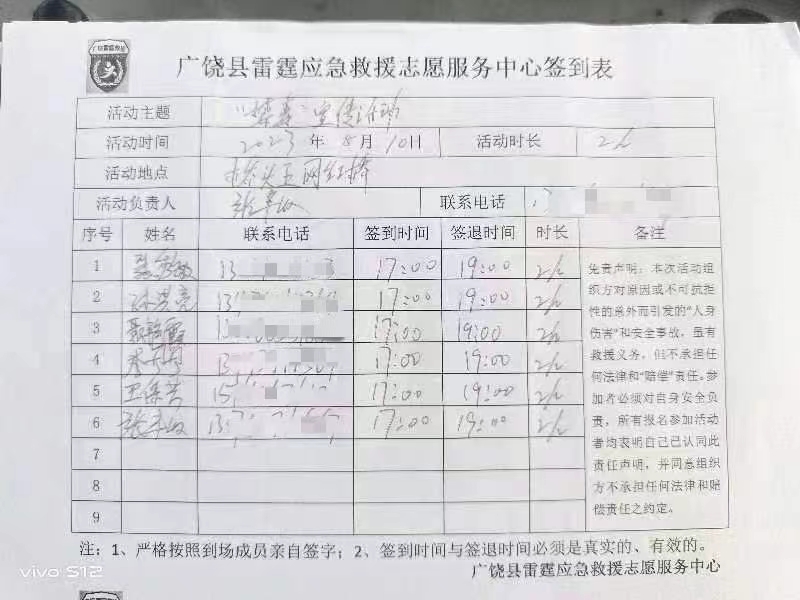 广饶县雷霆应急救援志愿服务中心签到表
活动主题 "禁毒"宣传活动
活动时间 2023年8月10日 活动时长 2h
活动地点
活动负责人 联系电话
序号 姓名 联系电话 签到时间 签退时间 时长 备注
1 13 17:00 19:00 2h
2 13 17:00 19:00 2h
3 13 17:00 19:00 2h
4 13 17:00 19:00 2h
5 15 17:00 19:00 2h
6 13 17:00 19:00 2h
7
8
9
免责声明:本次活动组
织方对原因或不可抗拒
性的意外而引发的"人身
伤害"和安全事故,虽有
救援义务,但不承担任
何法律和"赔偿"责任。参
加者必须对自身安全负
责,所有报名参加活动
者均表明自己已认同此
责任声明,并同意组织
方不承担任何法律和赔
偿责任之约定。
注:1、严格按照到场成员亲自签字;2、签到时间与签退时间必须是真实的、有效的。
广饶县雷霆应急救援志愿服务中心
vivo S12